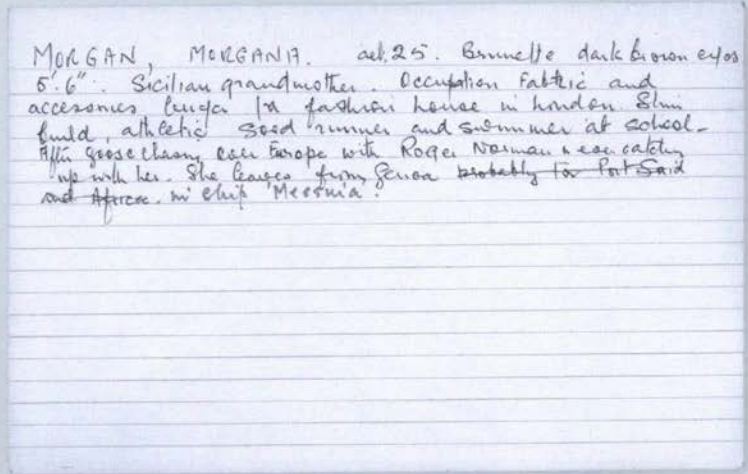 MORGAN, MORGANA. aet. 25. Brunette dark brown eyes
5'.6". Sicilian grandmother. Occupation Fabric and
accessories buyer for fashion house in London. Slim
build, athletic good runner and swimmer at school.
After goose chasing over Europe with Roger Norman never catching
up with her. She leaves from Genoa probably for Port Said
and Africa. in ship 'Messinia'.